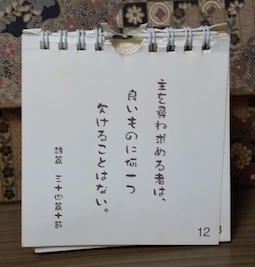 主を尋ね求める者は、
良いものに何一つ
欠けることはない。
詩篇 三十四篇十節
12